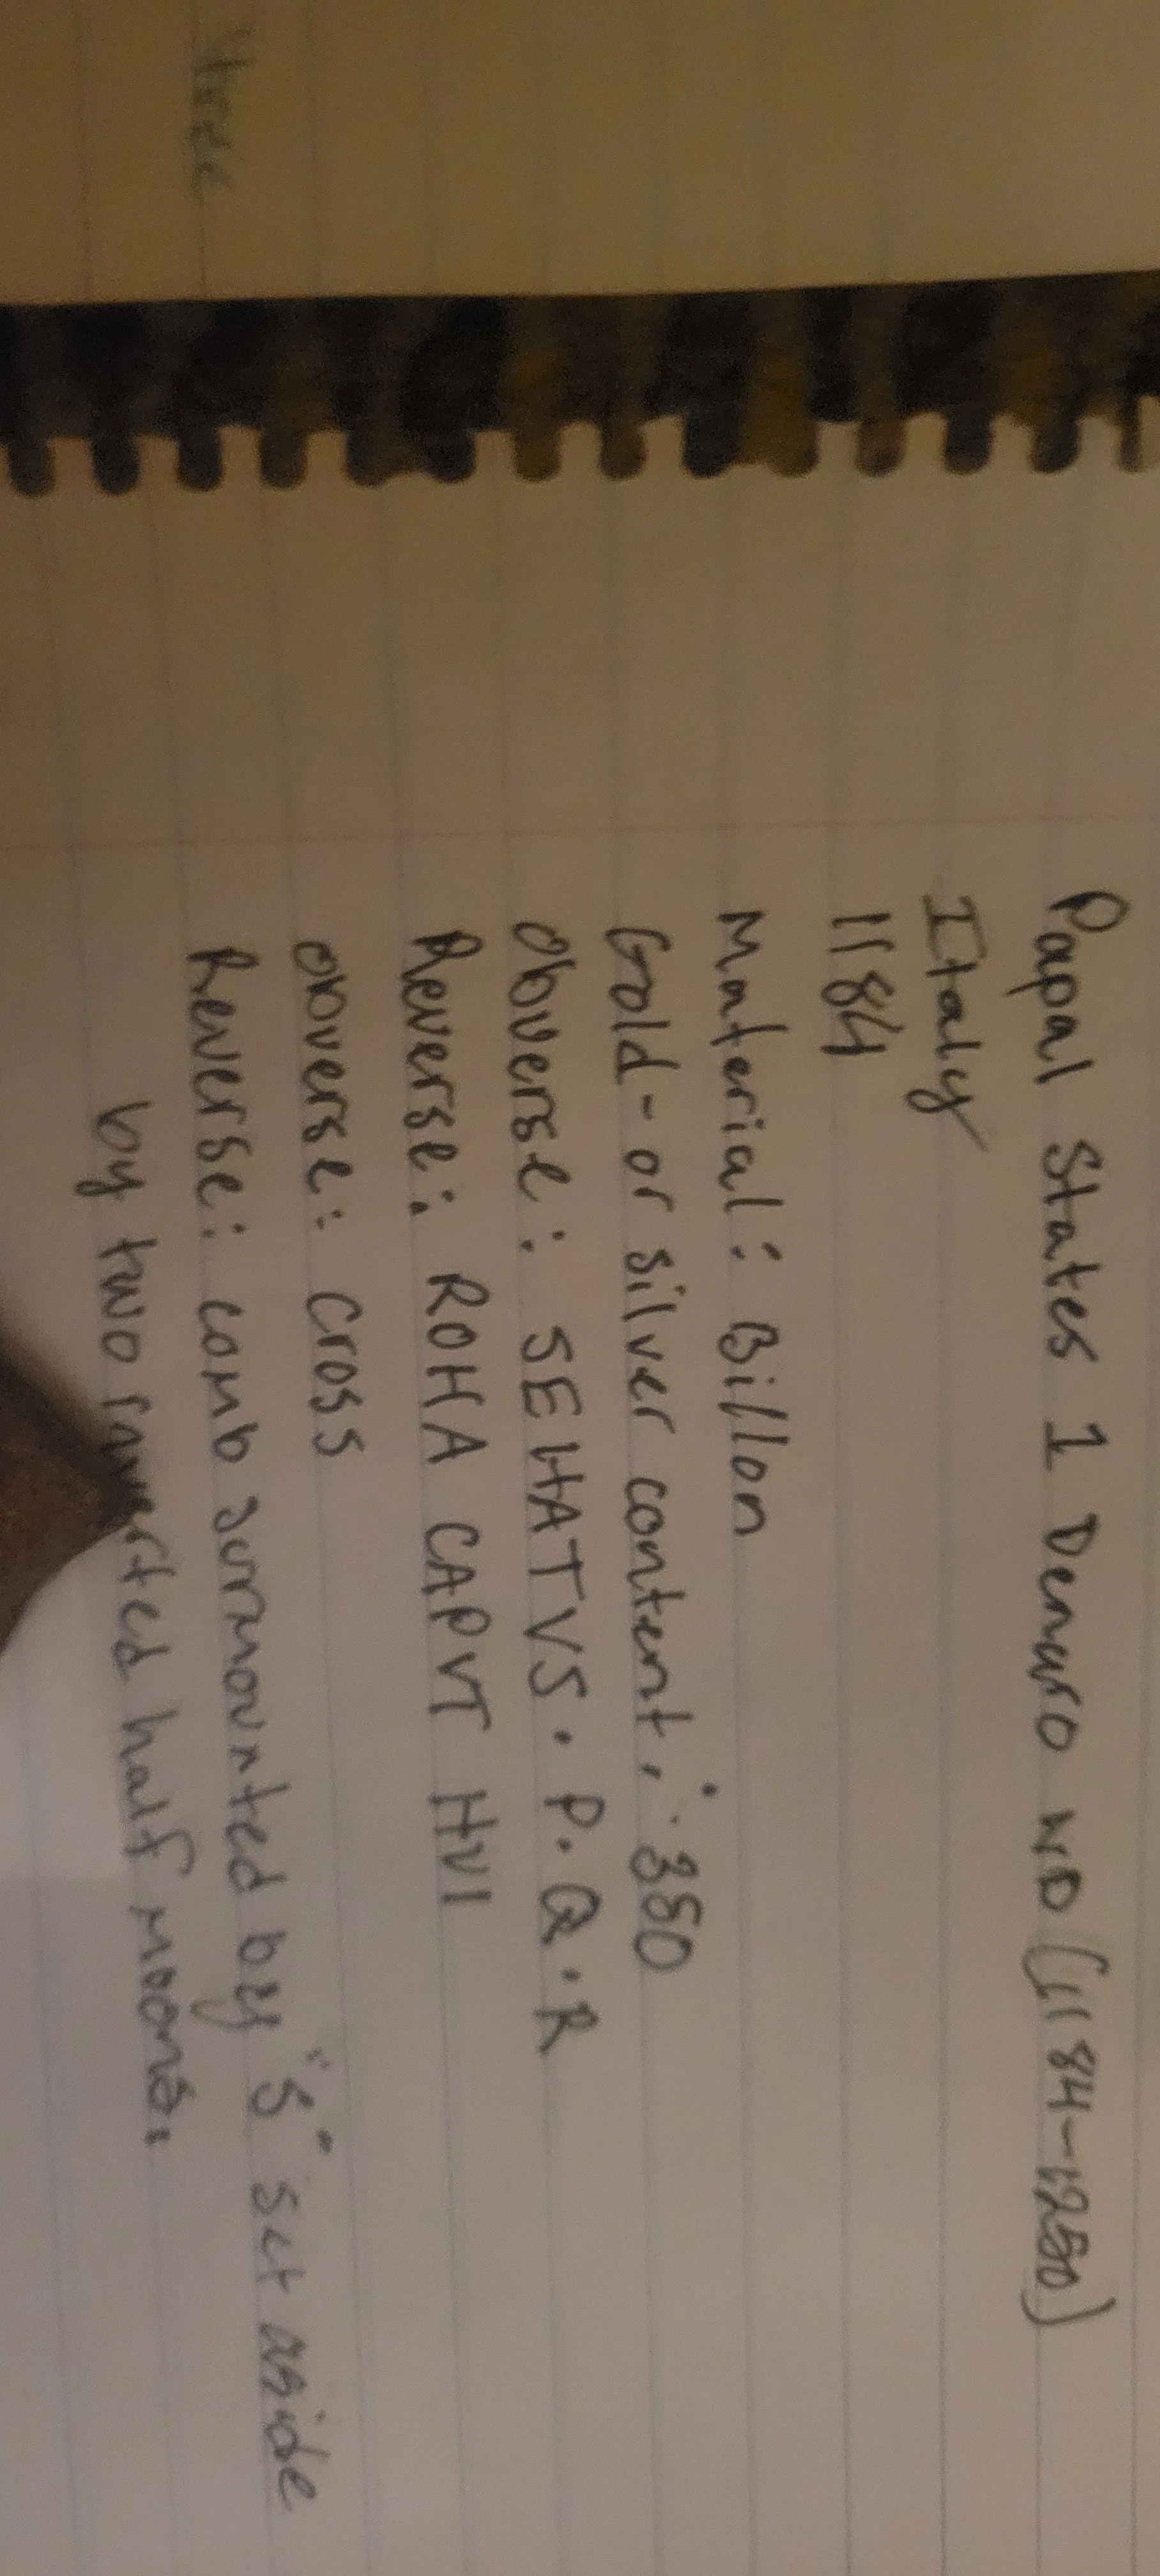 Papal States 1 Denaro ND (1184-1250)
Italy
1184
Material: Billon
Gold- or silver content: .350
Obverse: SEHATVS. P. Q. R
Reverse: ROHA CAPVT HVI
Obverse: Cross
Reverse: comb surmounted by "S" set aside
by two inverted half moons.